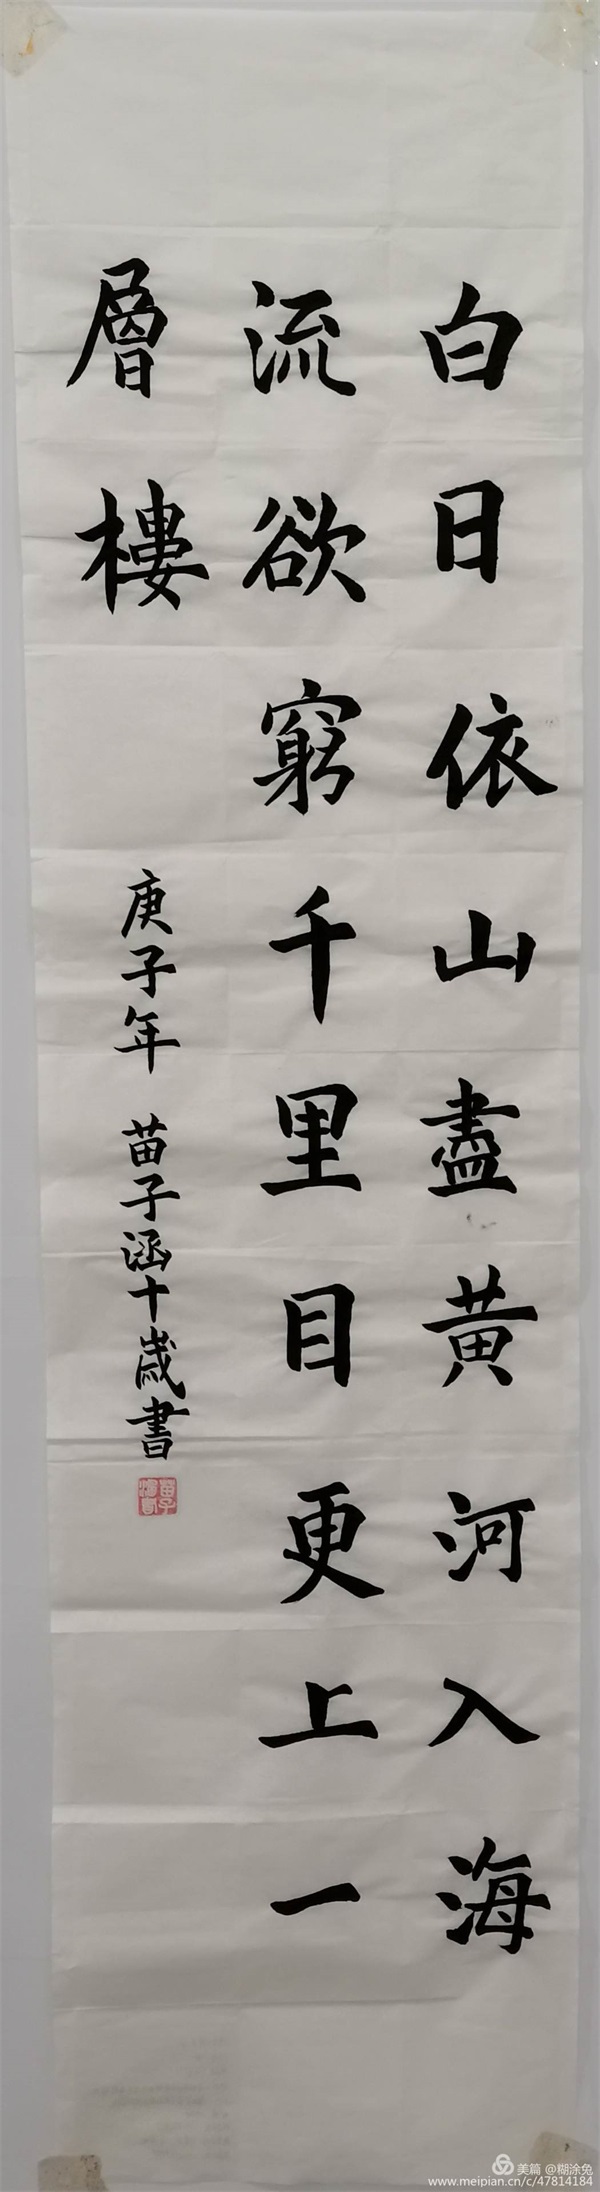 白日依山盡黃河入海
流欲窮千里目更上一
層樓
庚子年 苗子涵十歲書
美篇 @糊涂兔
www.meipian.cn/c/47814184